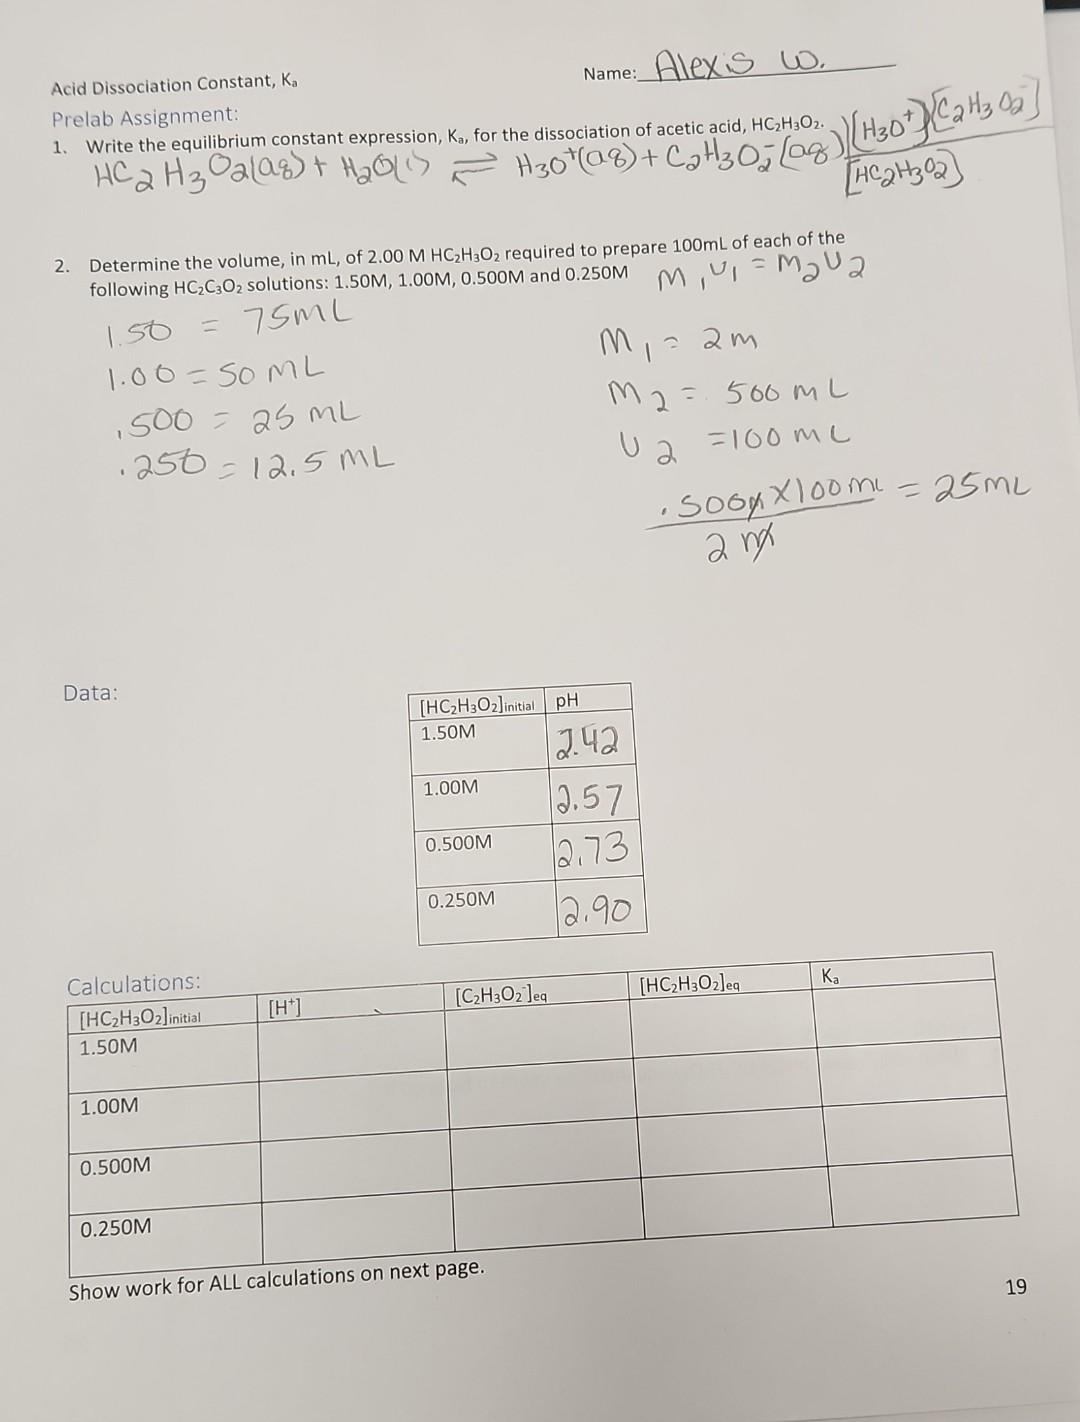 Acid Dissociation Constant, Kₐ
Name: Alexis W.
Prelab Assignment:
1. Write the equilibrium constant expression, Kₐ, for the dissociation of acetic acid, HC₂H₃O₂.
HC₂H₃O₂(aq) + H₂O(l) ⇌ H₃O⁺(aq) + C₂H₃O₂⁻(aq)
[H₃O⁺][C₂H₃O₂⁻]
[HC₂H₃O₂]
2. Determine the volume, in mL, of 2.00 M HC₂H₃O₂ required to prepare 100mL of each of the
following HC₂C₃O₂ solutions: 1.50M, 1.00M, 0.500M and 0.250M
M₁V₁ = M₂V₂
1.50 = 75mL
1.00 = 50 mL
.500 = 25 mL
.250 = 12.5 mL
M₁ = 2m
M₂ = 500 mL
V₂ = 100 mL
.500M X 100mL = 25mL
2 M
Data:
[HC₂H₃O₂]initial pH
1.50M 2.42
1.00M 2.57
0.500M 2.73
0.250M 2.90
Calculations:
[HC₂H₃O₂]initial [H⁺] [C₂H₃O₂⁻]eq [HC₂H₃O₂]eq Kₐ
1.50M
1.00M
0.500M
0.250M
Show work for ALL calculations on next page.
19